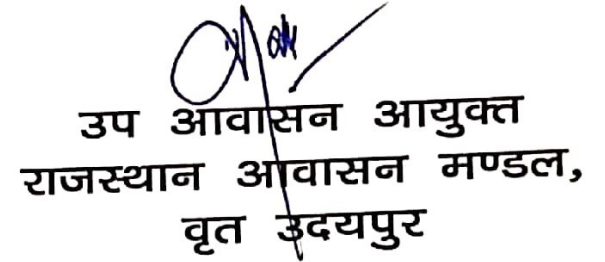 उप आवासन आयुक्त
राजस्थान आवासन मण्डल,
वृत उदयपुर